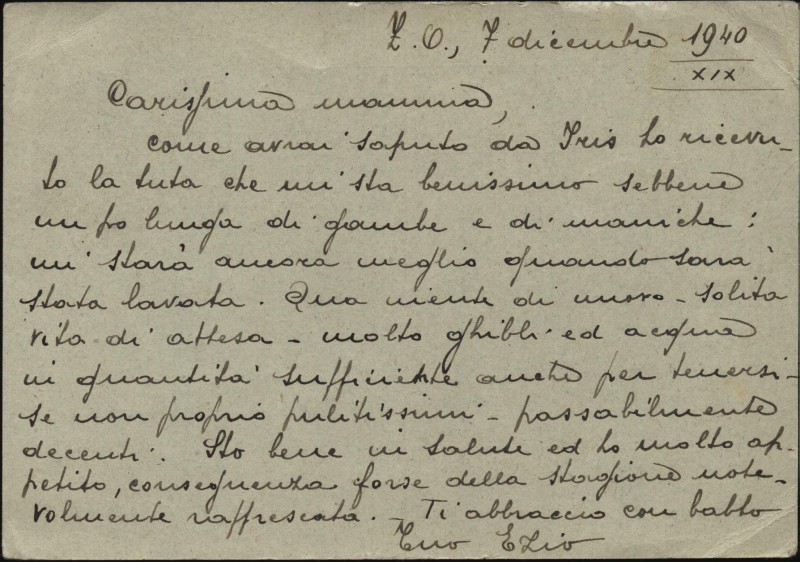 Z.O., 7 dicembre 1940
XIX
Carissima mamma,
come avrai saputo da Iris ho ricevu-
to la tuta che mi sta benissimo sebbene
un po lunga di gambe e di maniche:
mi starà ancora meglio quando sarà
stata lavata. Qua niente di nuovo - solita
vita di attesa - molto ghibli ed acqua
in quantità sufficiente anche per tenersi -
se non proprio pulitissimi - passabilmente
decenti. Sto bene in salute ed ho molto ap-
petito, conseguenza forse della stagione note-
volmente raffrescata. - Ti abbraccio con babbo
Tuo Ezio